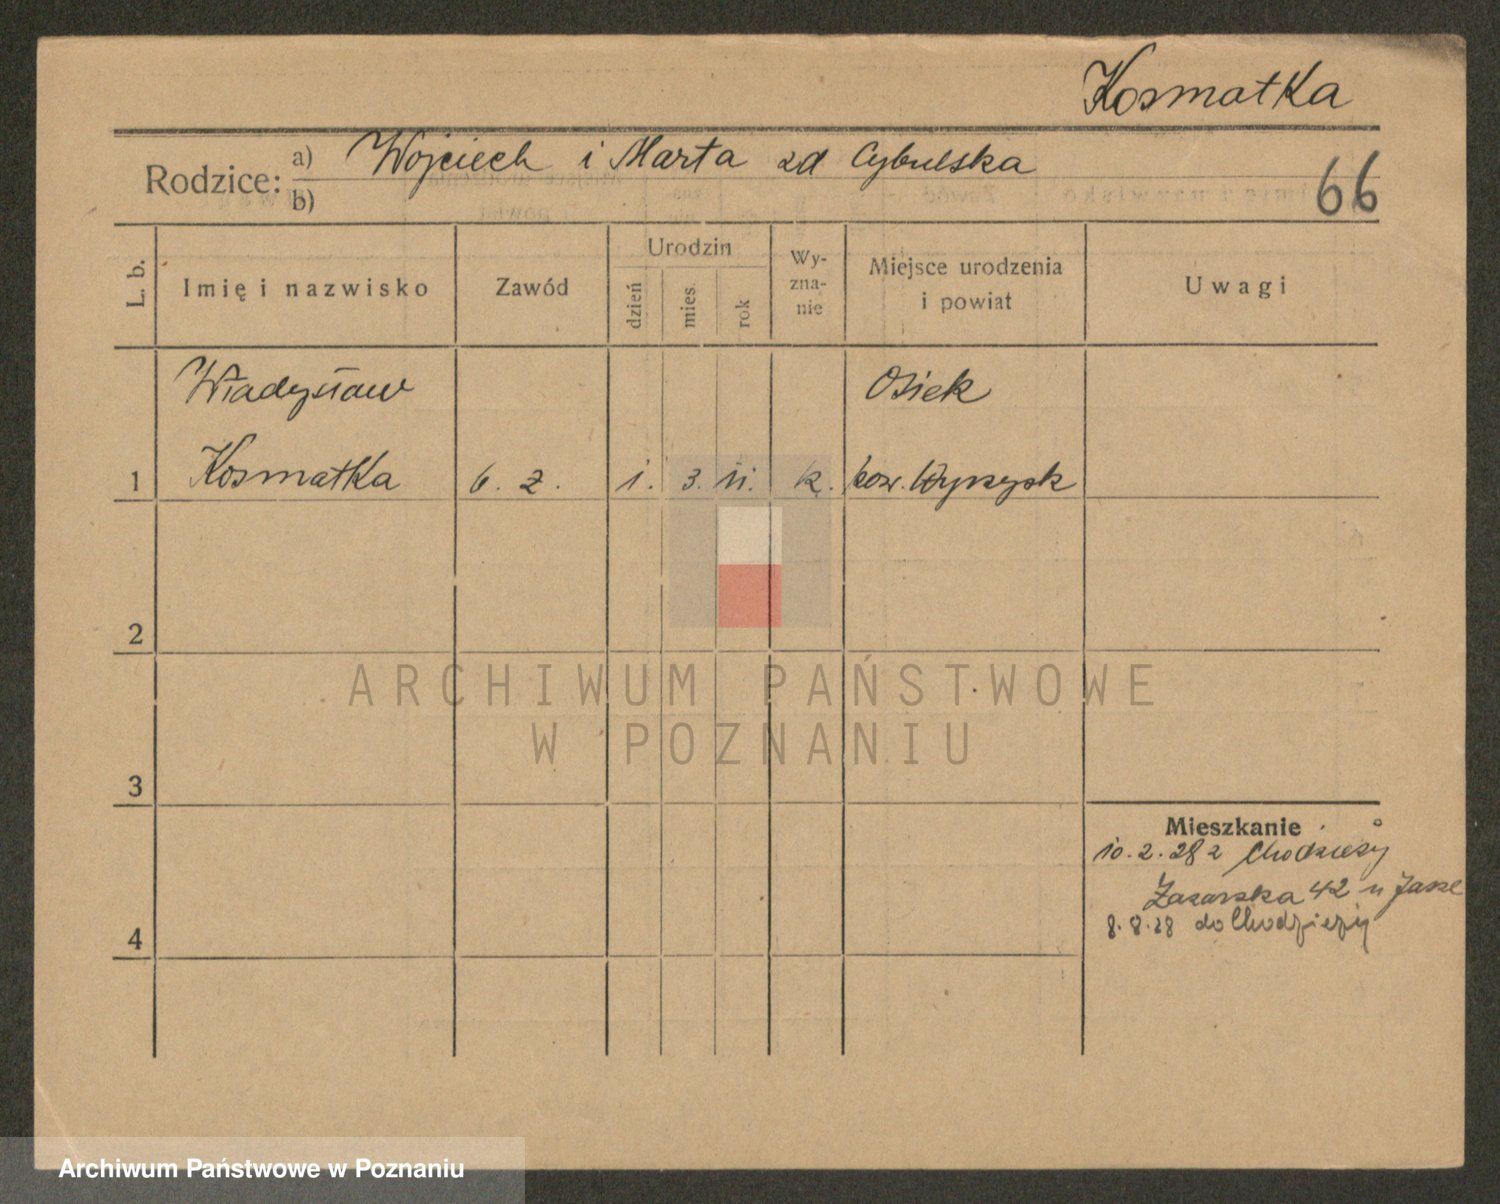 Kosmatka
Rodzice: a) Wojciech i Marta zd Cybulska
b)
66
L. b.
Imię i nazwisko
Zawód
Urodzin
dzień
mies.
rok
Wy-
zna-
nie
Miejsce urodzenia
i powiat
Uwagi
Władysław
Osiek
1 Kosmatka b. z. 1. 3. 11. k. pow. Wyrzysk
2
3
4
Mieszkanie
10.2.28 z Chodzieży
42 u
8.8.28 do Chodzieży
ARCHIWUM PAŃSTWOWE
W POZNANIU
Archiwum Państwowe w Poznaniu